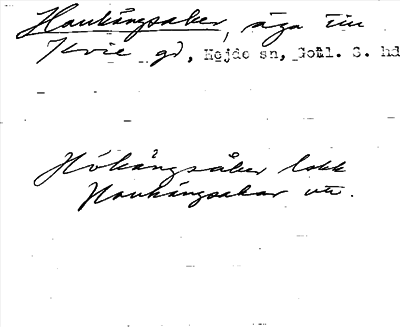 Haukångsaker, äga till
Kvie gd, Hejde sn, Gotl. S. hd
Hökångsåker lokk
Haukångsakar utt.